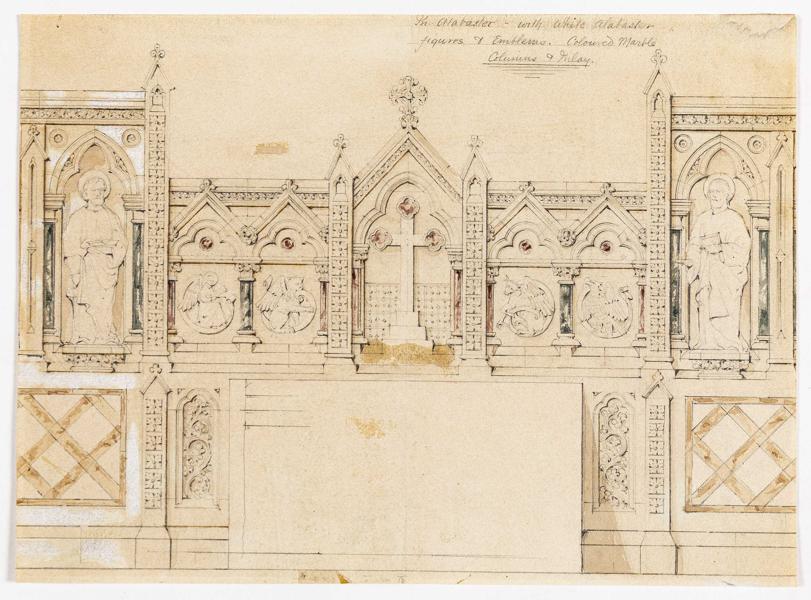 In Alabaster - with White Alabaster
figures & Emblems. Coloured Marble
Columns & Inlay.